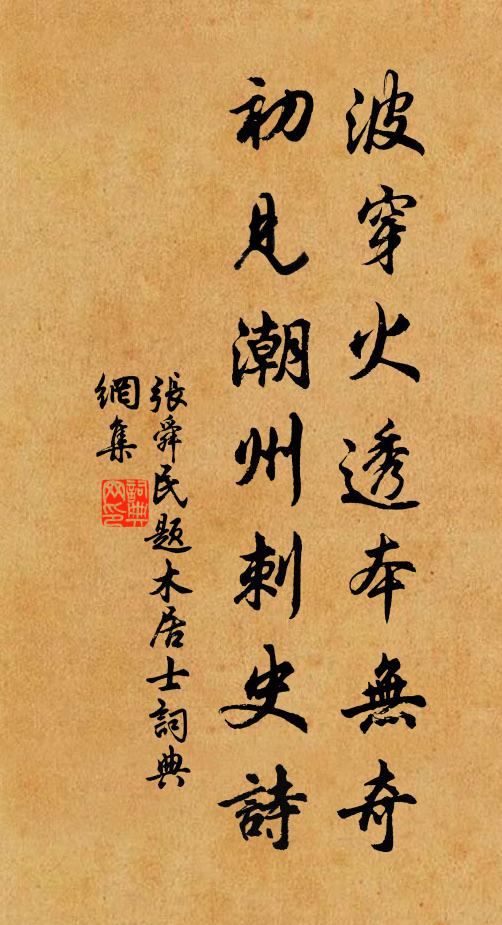 波穿火透本無奇
初見潮州刺史詩
張舜民題木居士詞典
網集
詞典
网印